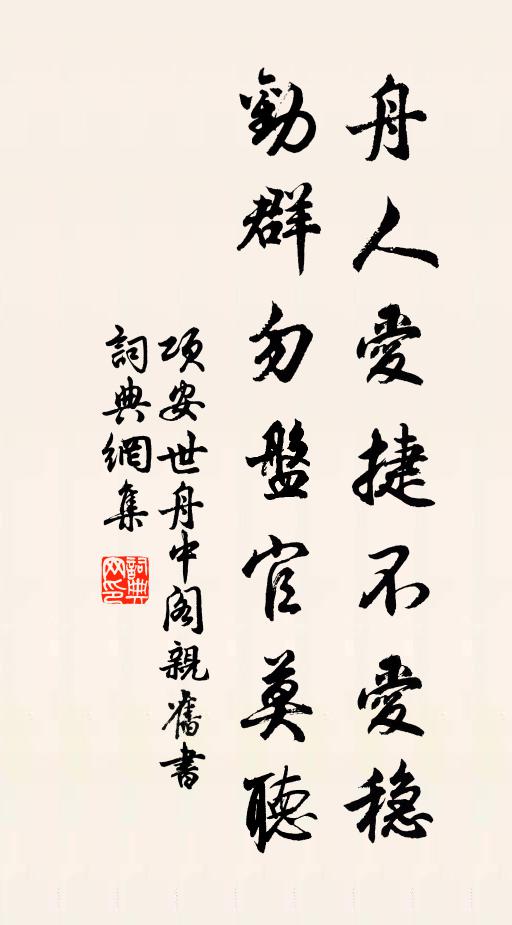 舟人愛捷不愛穩
勸群勿盤官莫聽
項安世舟中閣親舊書
詞典網集
詞典网印